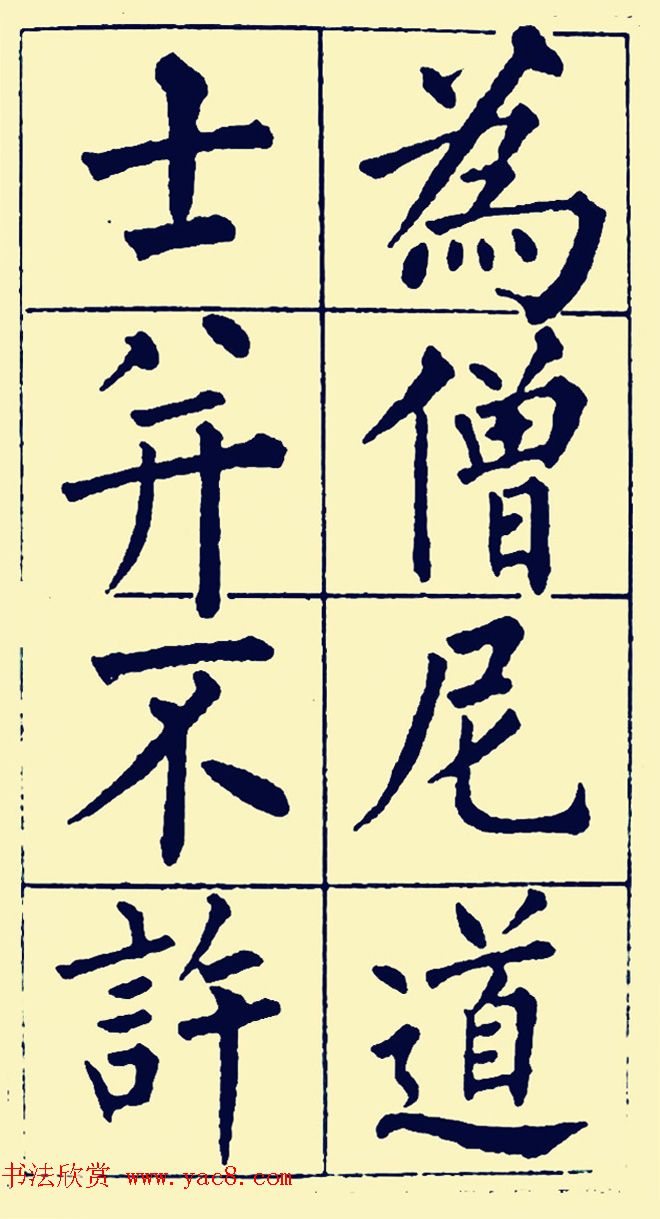 為僧尼道
士并不許
书法欣赏 www.yac8.com